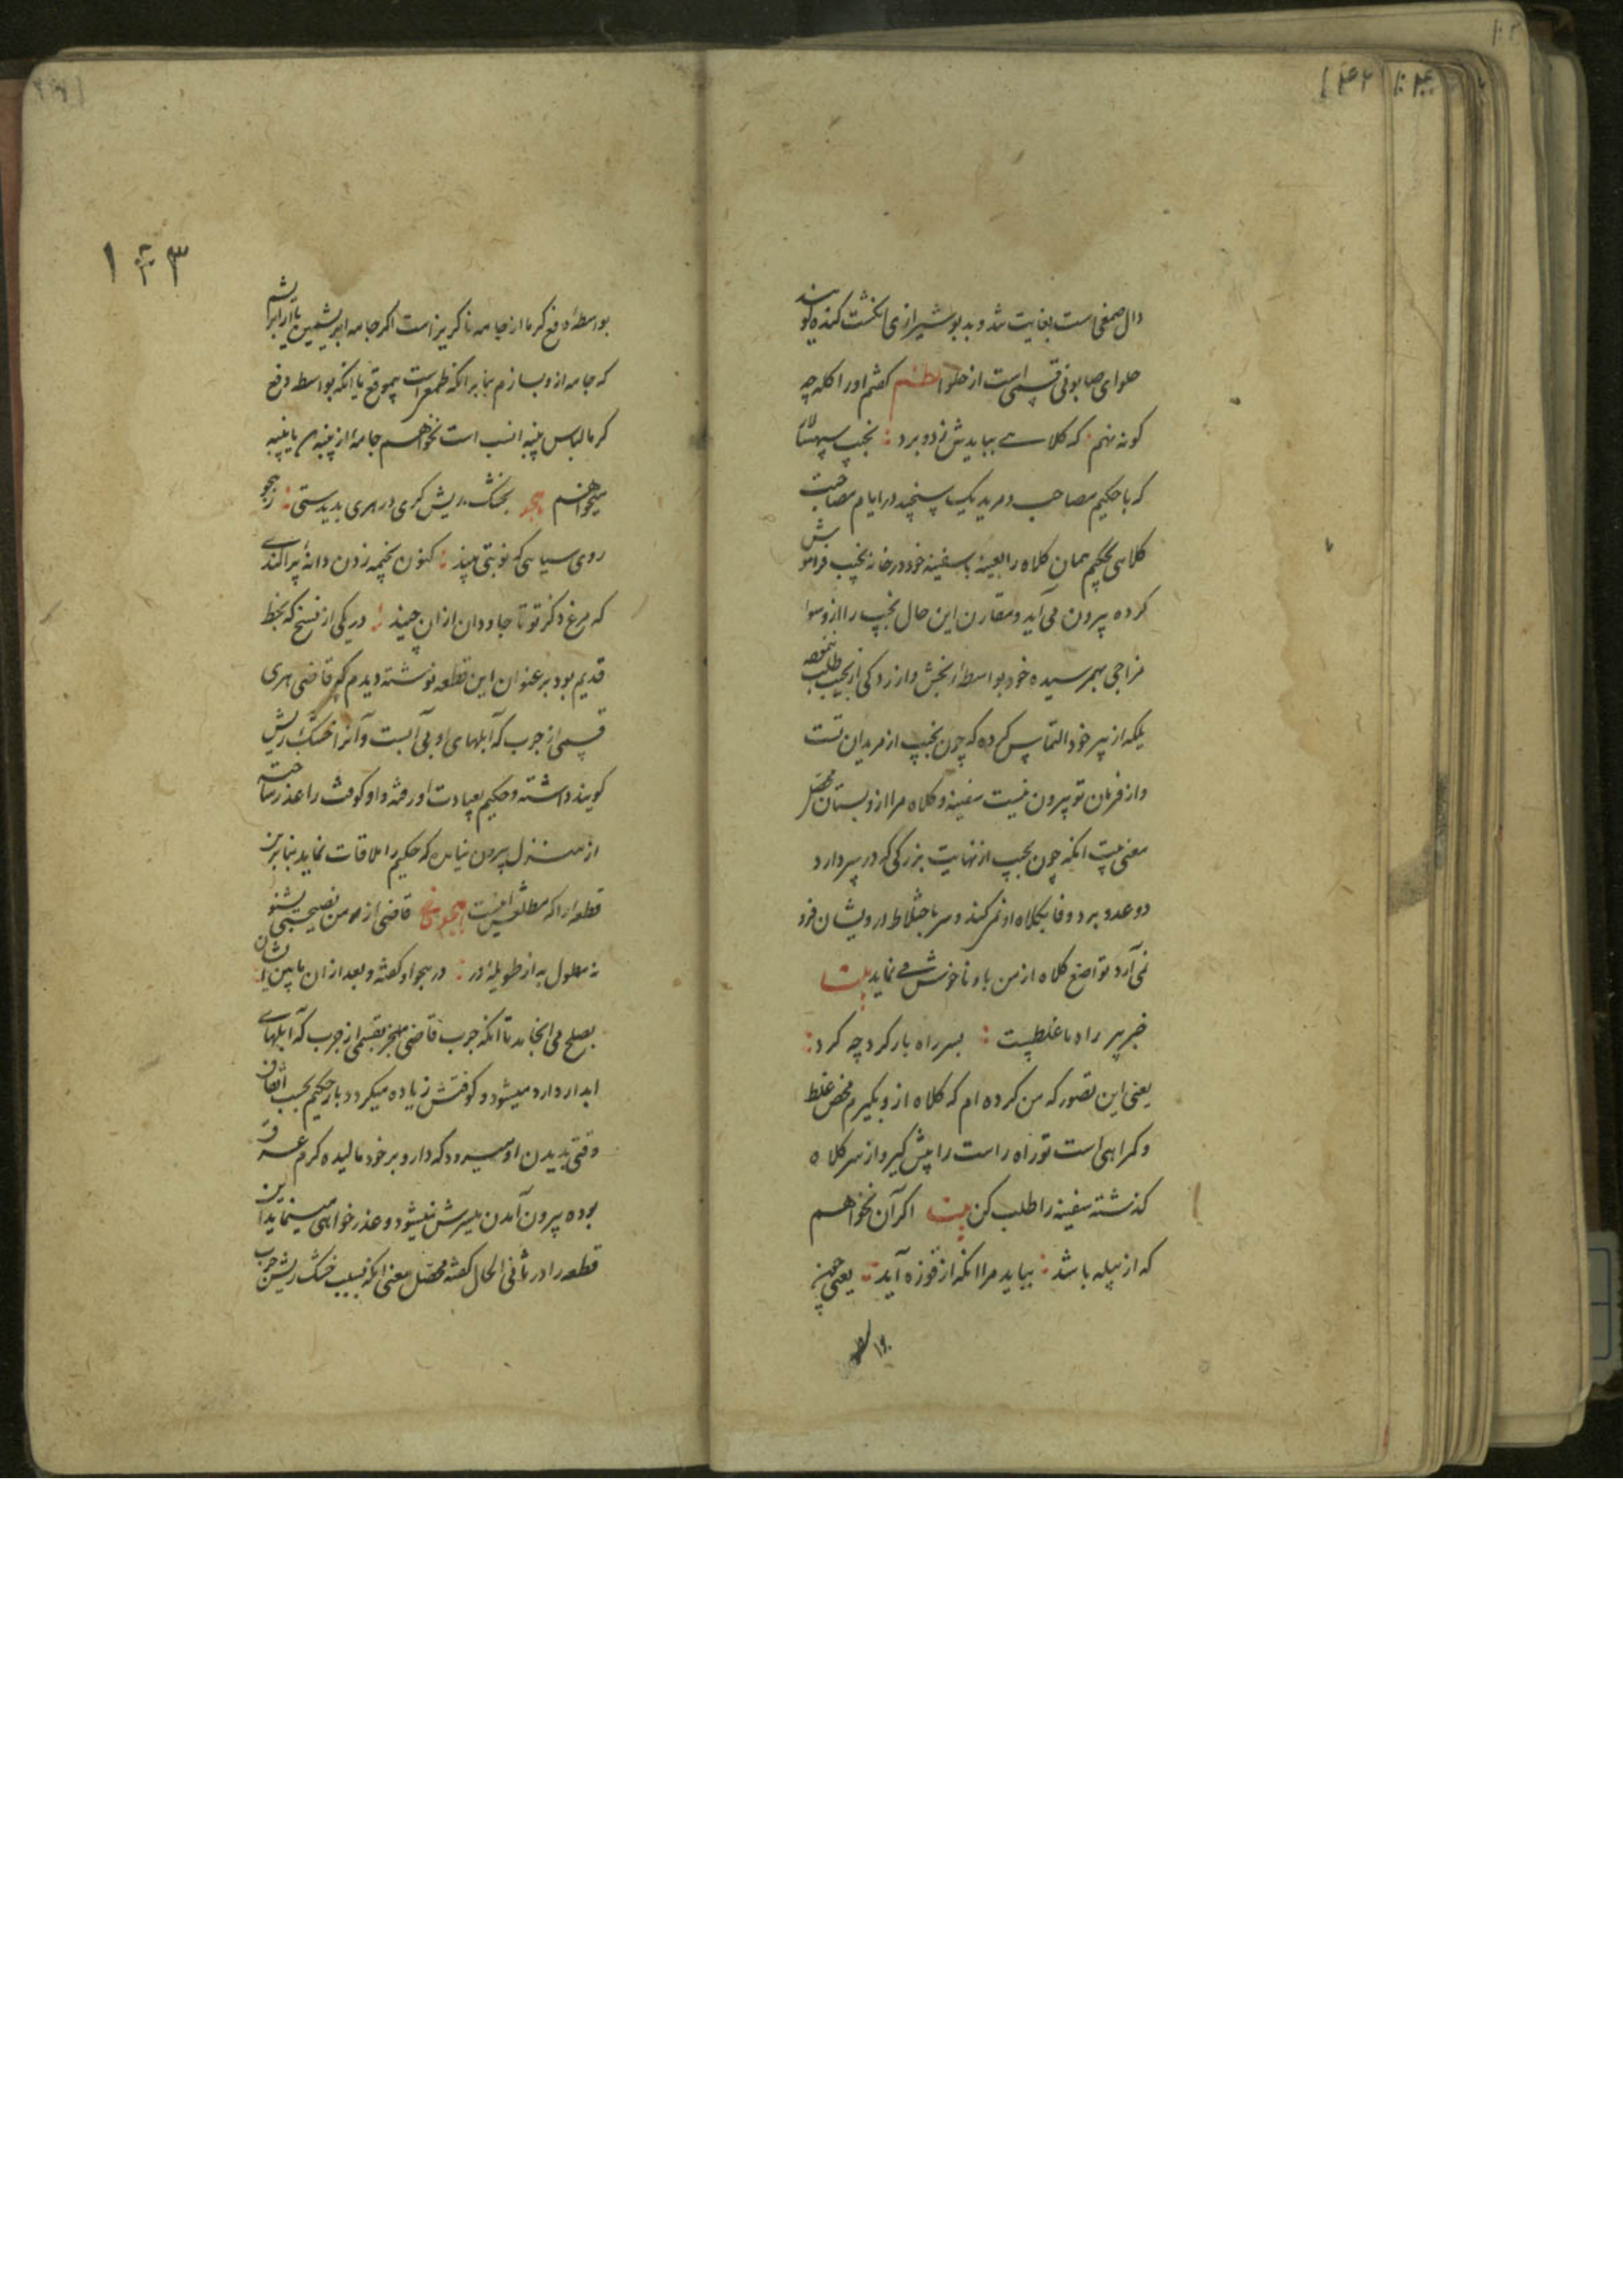 دال صمغی است بغایت تند و بد بو شیرازی انکشت کنده کویند
حلوای صابونی قسمی است از حلوا نظم کفتم اورا کله چه
کونه نهم که کلاهی بیابدش زد و برد نجیب
که با حکیم مصاحب و مرید یک در ایام مصاحبت
کلاهی حکیم همان کلاه را بعینه با سفینه خود در خانه نجیب فراموش
کرده بیرون می آید و مقارن این حال نجیب را ازو سوا
مزاجی بهم رسیده خود بواسطه رنجش و ازردکی از نجیب طلب
بلکه از پیر خود التماس کرده که چون نجیب از مریدان تست
و از فرمان تو بیرون نیست سفینه و کلاه مرا ازو بستان محصل
معنی بیت انکه چون نجیب از نهایت بزرکی که در سر دارد
دو عدد برد و فا بکلاه او نمی کند و سر باختلاط درویشان فرو
نمی آرد تواضع کلاه از من باو ناخوش می نماید بیت
خبر پیر راه ما غلطیست بسر راه باز کرد چه کرد
یعنی این تصور که من کرده ام که کلاه ازو بکیرم محض غلط
و کمراهی است تو راه راست را پیش کیر و از سر کلاه
کذشته سفینه را طلب کن بیت اکر آن نخواهم
که از پیله باشد بیاید مرا انکه از قوزه آید یعنی چون
۱۴۳
بواسطه دفع کرما از جامه ناکریز است اکر جامه ابریشمین یا ابریشم
که جامه ازو بسازم بنا بر انکه طمع است بیموقع یا انکه بواسطه دفع
کرما لباس پنبه انسب است نخواهم جامه از پنبه یا پنبه
میخواهم هجو بخشک ریش کری در هری بدیدستی ز هجو
روی سیاهی که نوبتی بیند کنون بخیمه زدن دانه پراکندی
که مرغ ذکر تو تا جاودان ازان چیند در یکی از نسخ که بخط
قدیم بود بر عنوان این قطعه نوشته دیدم که قاضی هری
قسمی از جرب که آبلهای او بی آبست و آنرا خشک ریش
کویند داشته و حکیم بعیادت او رفته و او کوفت را عذر ساخته
از منزل بیرون نیامده که حکیم را ملاقات نماید بنابرین
قطعه را که مطلعش اینست هجو قاضی از من نصیحتی بشنو
نه مطول به از طویله در در هجو او کفته و بعد از ان مابین ایشان
بصلح می انجامد تا انکه جرب قاضی منجر بقسمی از جرب که آبلهای
ابدار دارد میشود و کوفتش زیاده میکردد بار حکیم بحسب اتفاق
وقتی بدیدن او میرود که دارو بر خود مالیده کرم عرق
بوده بیرون آمدن میسرش نمیشود و عذر خواهی مینماید این
قطعه را در ثانی الحال کفته محصل معنی انکه بسبب خشک ریش جرب